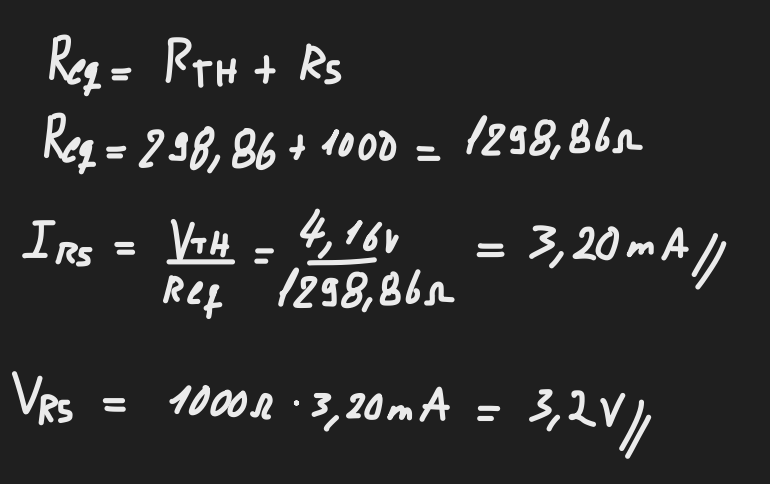 Req = RTH + R5
Req = 298,86 + 1000 = 1298,86Ω
IR5 = VTH / Req = 4,16v / 1298,86Ω = 3,20mA//
VR5 = 1000Ω · 3,20mA = 3,2V//